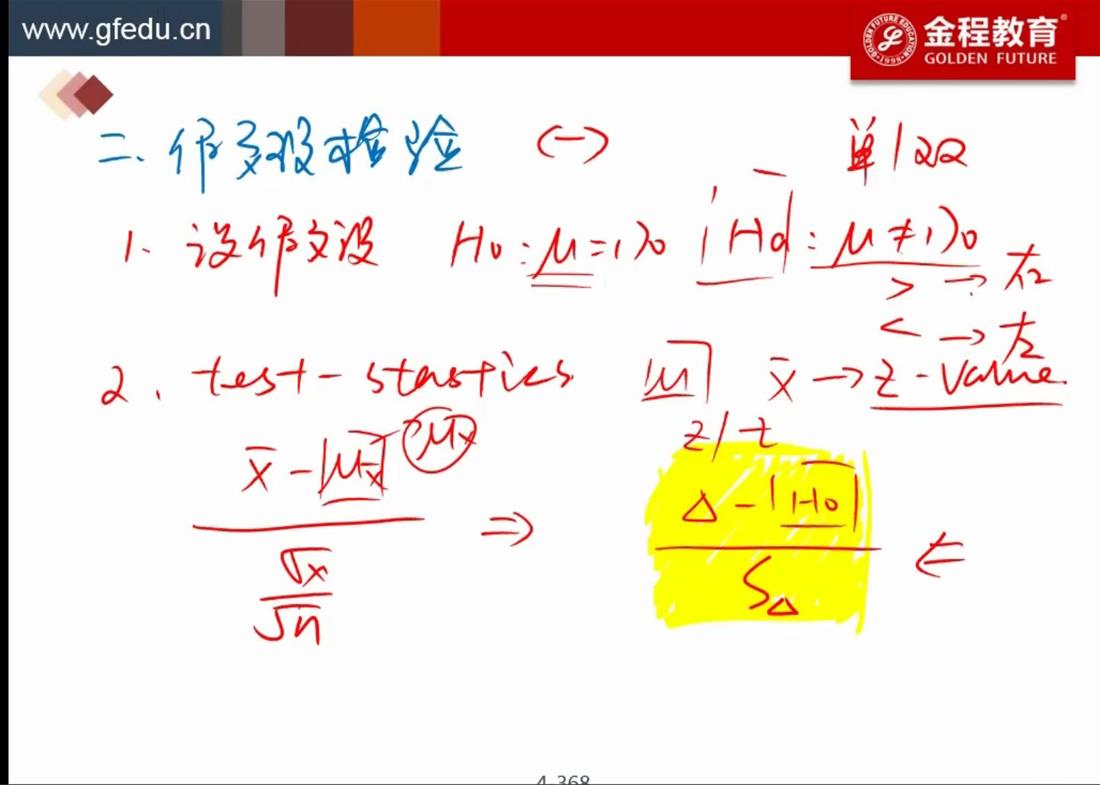 www.gfedu.cn
金程教育
GOLDEN FUTURE
二、假设检验 (一) 单/双
1、设假设 H0: μ=170 Ha: μ≠170
> → 右
< → 左
2、test-stastics μ x̄ → z-value
z/t
x̄ - μx̄ μx
σx
√n
⇒
Δ - H0
SΔ
⇐
4-368